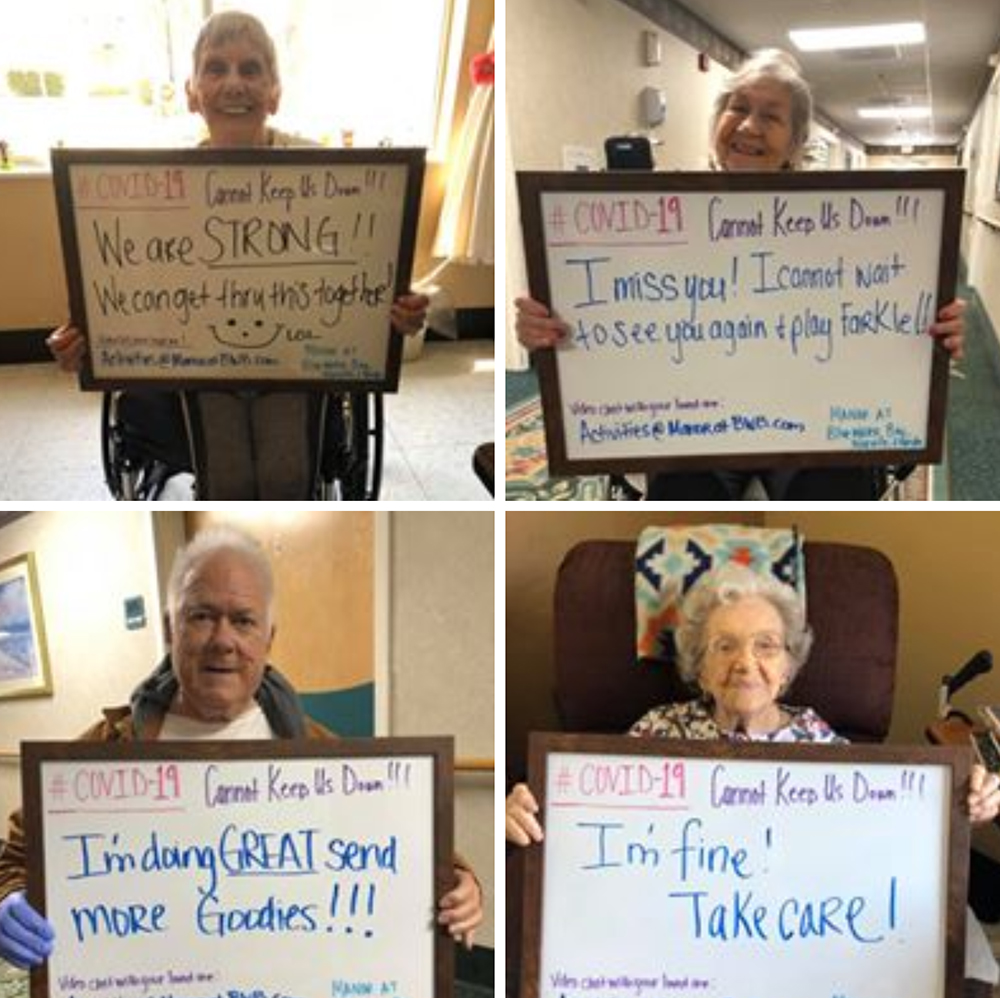 #COVID-19 Cannot Keep Us Down!!!
We are STRONG!!
We can get thru this together!
LOL
Activities@ManoratBWB.com
MANOR AT
Blue Water Bay
#COVID-19 Cannot Keep Us Down!!!
I miss you! I cannot wait
to see you again + play FarKle!!
Video chat with your loved one:
Activities@ManoratBWB.com
MANOR AT
Blue Water Bay
#COVID-19 Cannot Keep Us Down!!!
I'm doing GREAT send
more Goodies!!!
Video chat with your loved one:
MANOR AT
#COVID-19 Cannot Keep Us Down!!!
I'm fine!
Take care!
Video chat with your loved one: